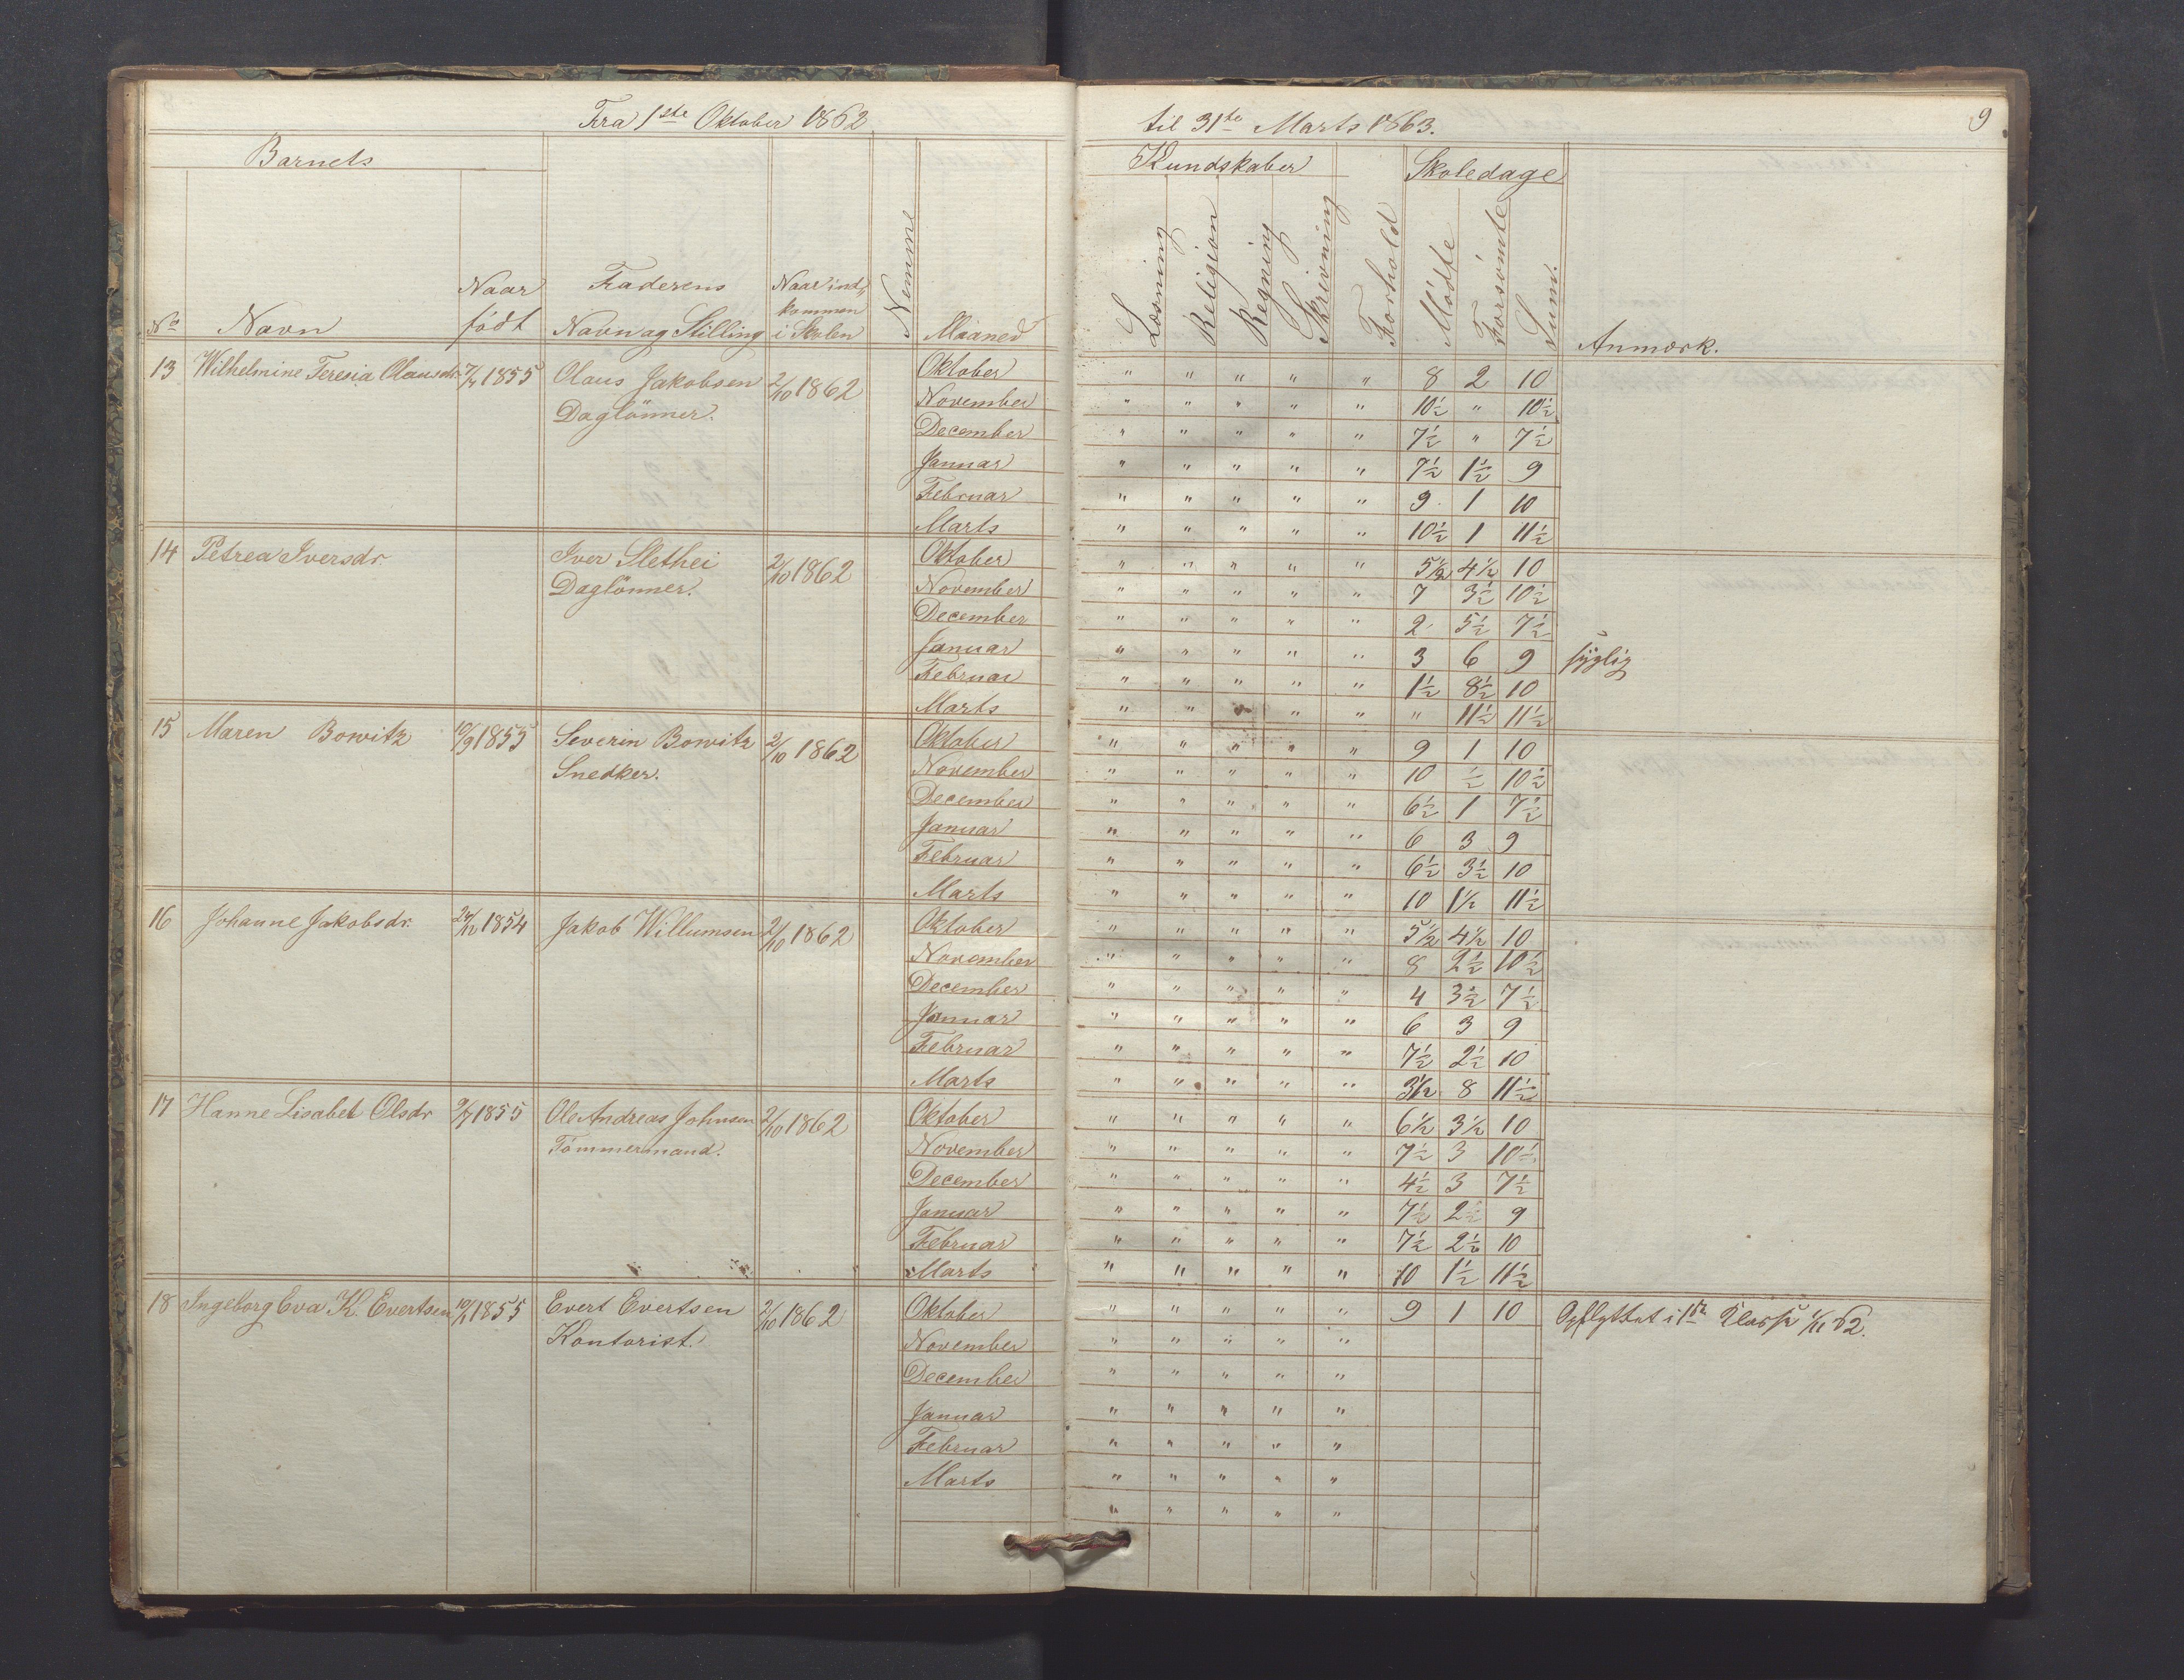 Fra 1ste Oktober 1862 til 31te Marts 1863. 9
Barnets Kundskaber Skoledage
No Navn Naar født Faderens Navn og Stilling Naar ind„ kommen i Skolen Nemme Maaned Læsning Religion Regning Skrivning Forhold Mødte Forsömte Sum. Anmærk.
13 Wilhelmine Teresia Olausdr. 1855 Olaus Jakobsen 2/10 1862 Oktober " " " " " 8 2 10
Daglönner. November " " " " " 10½ " 10½
December " " " " " 7½ " 7½
Januar " " " " " 7½ 1½ 9
Februar " " " " " 9 1 10
Marts " " " " " 10½ 1 11½
14 Petrea Iversdr. Iver Slethei 2/10 1862 Oktober " " " " " 5½ 4½ 10
Daglönner. November " " " " " 7 3½ 10½
December " " " " " 2 5½ 7½
Januar " " " " " 3 6 9 syglig
Februar " " " " " 1½ 8½ 10
Marts " " " " " " 11½ 11½
15 Maren Bowitz 10/9 1855 Severin Bowitz 2/10 1862 Oktober " " " " " 9 1 10
Snedker. November " " " " " 10 ½ 10½
December " " " " " 6½ 1 7½
Januar " " " " " 6 3 9
Februar " " " " " 6½ 3½ 10
Marts " " " " " 10 1½ 11½
16 Johanne Jakobsdr. 1854 Jakob Willumsen 2/10 1862 Oktober " " " " " 5½ 4½ 10
November " " " " " 8 2½ 10½
December " " " " " 4 3½ 7½
Januar " " " " " 6 3 9
Februar " " " " " 7½ 2½ 10
Marts " " " " " 3½ 8 11½
17 Hanne Lisabet Olsdr 1855 Ole Andreas Johnsen 2/10 1862 Oktober " " " " " 6½ 3½ 10
Tömmermand. November " " " " " 7½ 3 10½
December " " " " " 4½ 3 7½
Januar " " " " " 7½ 2½ 9
Februar " " " " " 7½ 2½ 10
Marts " " " " " 10 1½ 11½
18 Ingeborg Eva K. Evertsen 1855 Evert Evertsen 2/10 1862 Oktober " " " " " 9 1 10 Opflyttet i 1ste Klasse 1/11 62.
Kontorist. November " " " " "
December " " " " "
Januar " " " " "
Februar " " " " "
Marts " " " " "
" " " " "